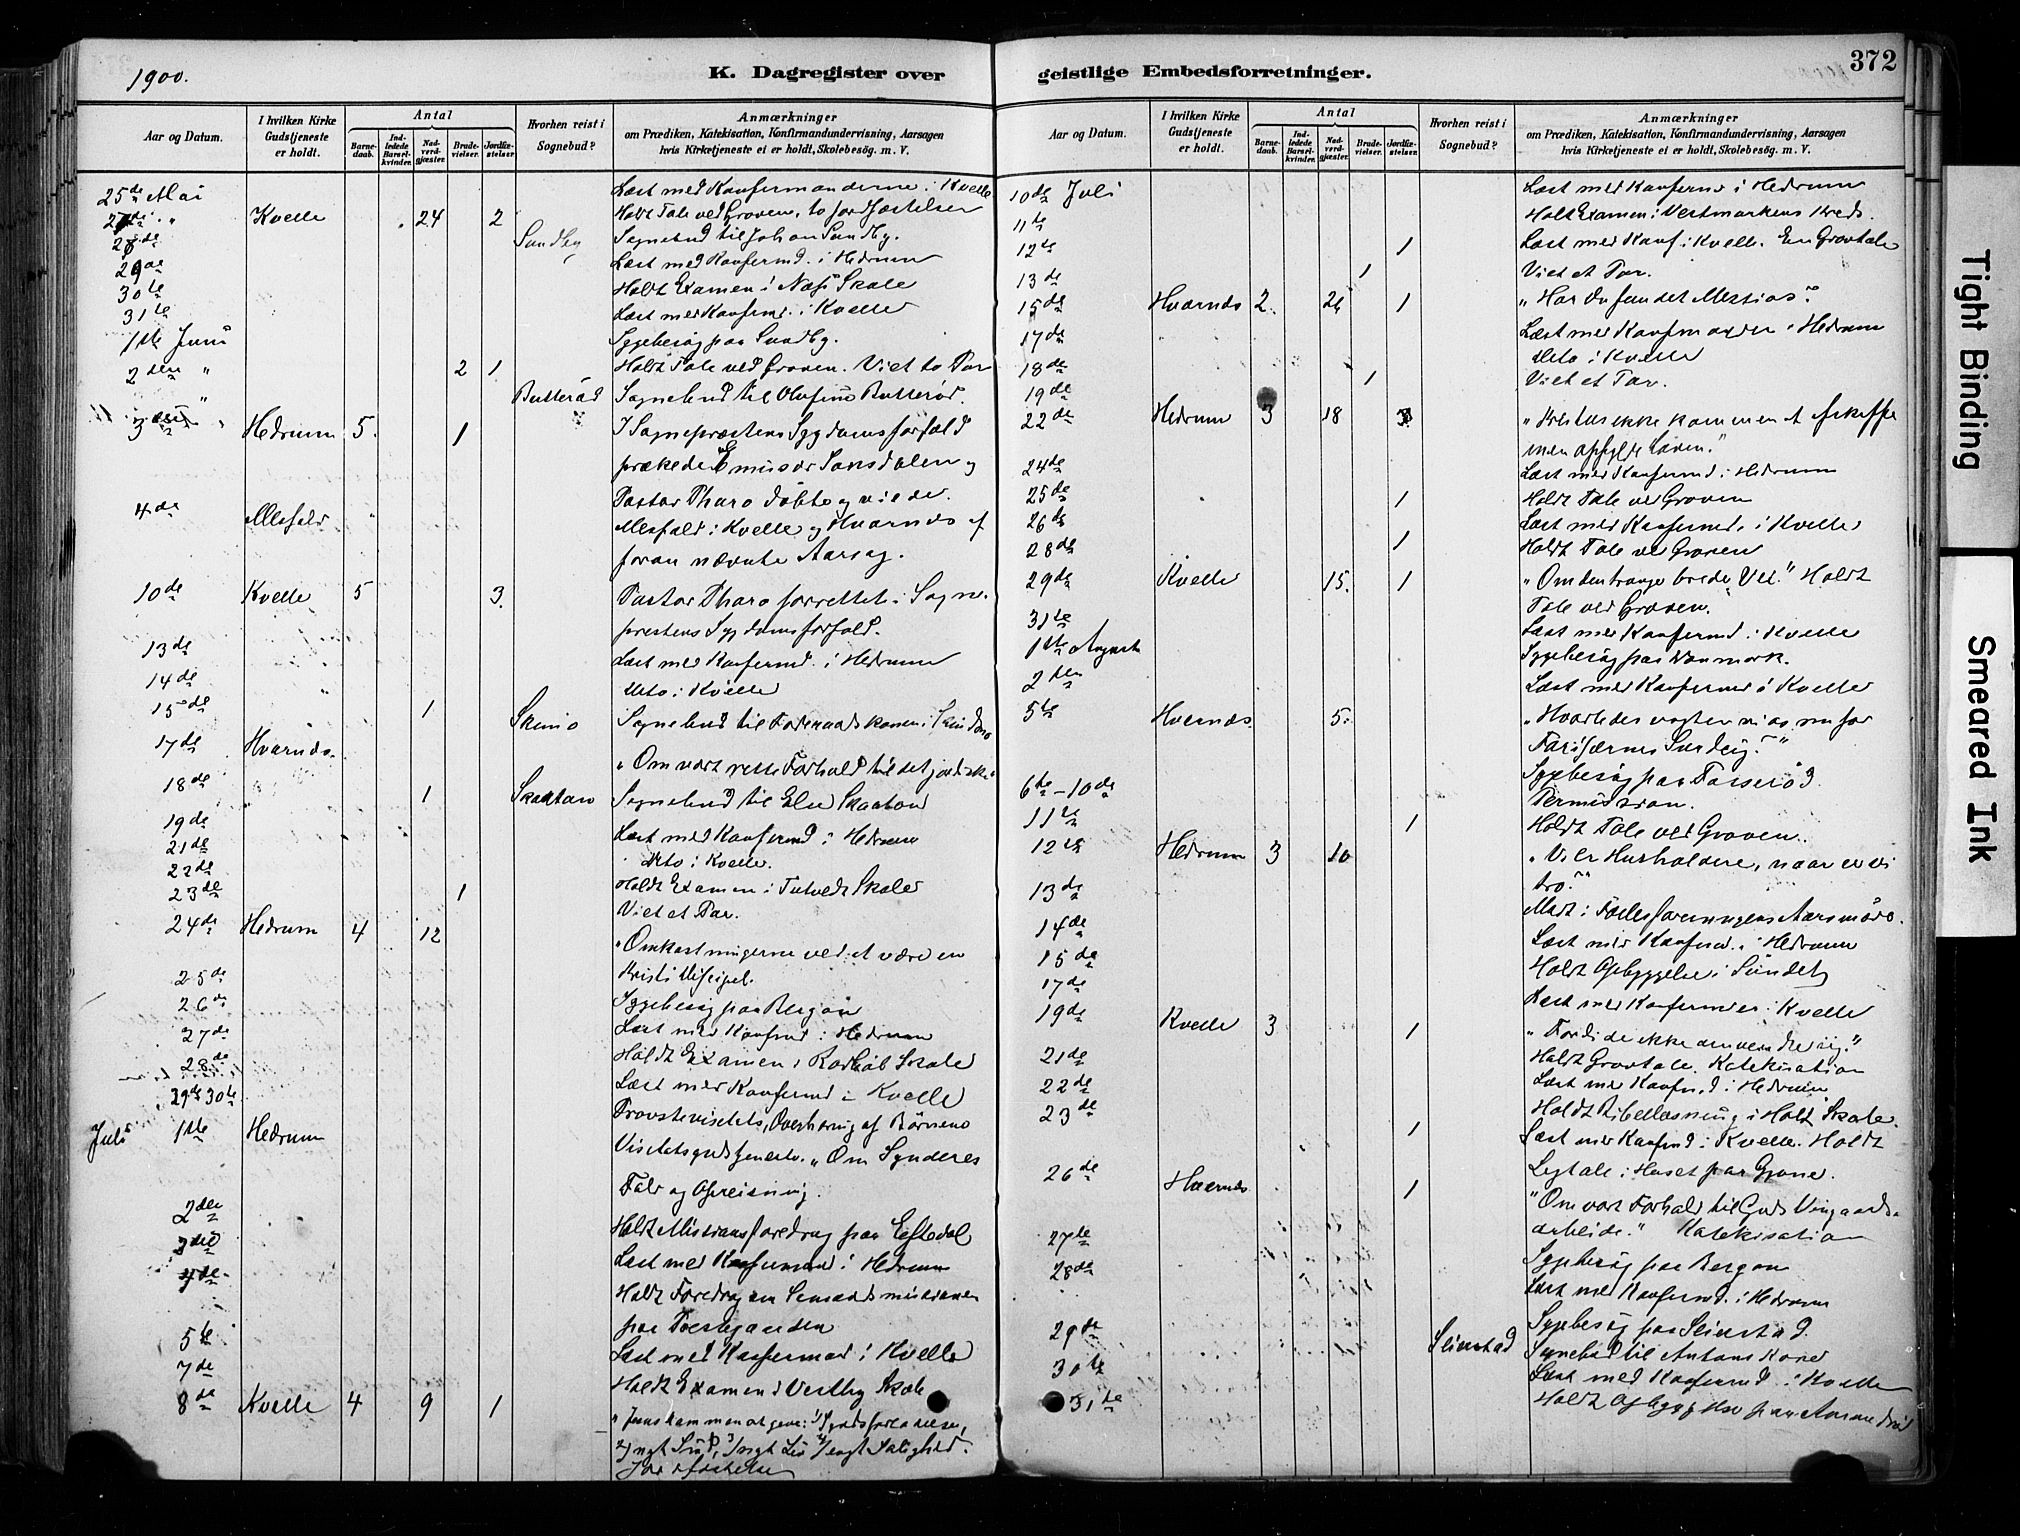 1900.
K. Dagregister over
geistlige Embedsforretninger.
372
Aar og Datum.
I hvilken Kirke Gudstjeneste er holdt.
Antal
Barnedaab.
Indledede Barselkvinder.
Nadverdgjæster.
Brudevielser.
Jordfæstelser.
Hvorhen reist i Sognebud?
Anmærkninger
om Prædiken, Katekisation, Konfirmandundervisning, Aarsagen
hvis Kirketjeneste ei er holdt, Skolebesøg. m. V.
25de Mai Læst med Konfermanderne i Kvelle
27de " Kvelle 24 2 Holdt Tale ved Graven, to Jordfæstelser
28de Sundby Sognebud til Johan Sundby.
29de Læst med Konfermd. i Hedrum
30te Holdt Examen i Næs Skole
31te Læst med Konfermd. i Kvelle
1ste Juni Sygebesøg paa Sundby.
2den " 2 1 Holdt Tale ved Graven. Viet to Par
" Butterød Sognebud til Olufine Butterød.
3die " Hedrum 5 1 I Sogneprestens Sygdomsforfald
prækede Emissær Sonsdalen og
Pastor Tharo døbte og viede.
4de Messefald Messefald i Kvelle og Hvarnes af
foran nævnte Aarsag.
10de Kvelle 5 3. Pastor Tharo forrettet i Sogne-
prestens Sygdomsforfald.
13de Læst med Konfermd. i Hedrum
14de Dito i Kvelle
15de 1 Skinmo Sognebud til Foderaadskonen i
17de Hvarnes "Om vort rette Forhold til det jordiske"
18de 1 Skaatan Sognebud til Else Skaatan
19de Læst med Konfermd i Hedrum
21de Dito i Kvelle.
22de Holdt Examen i Tutvedt Skole
23de 1 Viet et Par.
24de Hedrum 4 12 "Omkostningerne ved at være en
Kristi Discipel.
25de Sygebesøg paa Bergan
26de Læst med Konfmd i Hedrum
27de Holdt Examen i Rødbøl Skole
28de Læst med Konfermd i Kvelle
29de 30te Provstevisitats, Overhøring af Børnene
Juli 1ste Hedrum Visitatsgudstjeneste. "Om Synderes
Fald og Opreisning.
2den Holdt Missionsforedrag paa Eftedal
3die Læst med Konfermd i Hedrum
4de Holdt Foredrag om Sømandsmissionen
paa Prestegaarden
5te Læst med Konfermd i Kvelle
7de Holdt Examen i Vestby Skole
8de Kvelle 4 9 1 "Jesus kommen at give: 1) Syndsforladelse,
2) nyt Sind, 3) nyt Liv 4) evigt Salighed.
Jordfæstelse
Aar og Datum.
I hvilken Kirke Gudstjeneste er holdt.
Antal
Barnedaab.
Indledede Barselkvinder.
Nadverdgjæster.
Brudevielser.
Jordfæstelser.
Hvorhen reist i Sognebud?
Anmærkninger
om Prædiken, Katekisation, Konfirmandundervisning, Aarsagen
hvis Kirketjeneste ei er holdt, Skolebesøg. m. V.
10de Juli Læst med Konfermd i Hedrum
11te Holdt Examen i Vestmarkens Kreds.
12te 1 Læst med Konf. i Kvelle. En Gravtale
13de 1 Viet et Par.
15de Hvarnes 2. 26 1 "Har du fundet Messias?"
17de Læst med Konfmander i Hedrum
18de Dito i Kvelle
19de 1 Viet et Par.
22de Hedrum 3 18 "Kristus ikke kommen at afskaffe
men opfylde Loven."
24de Læst med Konfermd. i Hedrum
25de 1 Holdt Tale ved Graven
26de Læst med Konfermd. i Kvelle
28de 1 Holdt Tale ved Graven
29de Kvelle 15. 1 "Om den trange brede Vei." Holdt
Tale ved Graven.
31te Læst med Konfermd. i Kvelle
1ste August Sygebesøg paa
2den Læst med Konfermd i Kvelle
5te Hvarnes 5. "Hvorledes vogter vi os nu for
Farisæernes Surdeig?"
Sygebesøg paa
6te–10de Permission.
11te 1 Holdt Tale ved Graven.
12te Hedrum 3 10 "Vi er Husholdere, naar er vi
tro?"
13de Mødt i Fællesforeningens Aarsmøde.
14de Læst med Konfermd. i Hedrum
15de Holdt Opbyggelse i Sundet
17de Læst med Konfermder i Kvelle
19de Kvelle 3 1 "Fordi de ikke omvendte sig."
Holdt Gravtale. Katekisation
21de Læst med Konfmd i Hedrum
22de Holdt Bibellæsning i Holt Skole.
23de 1 Læst med Konfmd i Kvelle. Holdt
Ligtale i Huset paa Gjone.
26de Hvarnes 1 "Om vort Forhold til Guds Vingaards-
arbeide." Katekisation
27de Sygebesøg paa Bergan
28de Læst med Konfermd. i Hedrum
29de Sygebesøg paa Seierstad.
Seierstad Sognebud til Antons Kone
30te Læst med Konfermd i Kvelle
31te Holdt Opbyggelse paa
Tight Binding
Smeared Ink